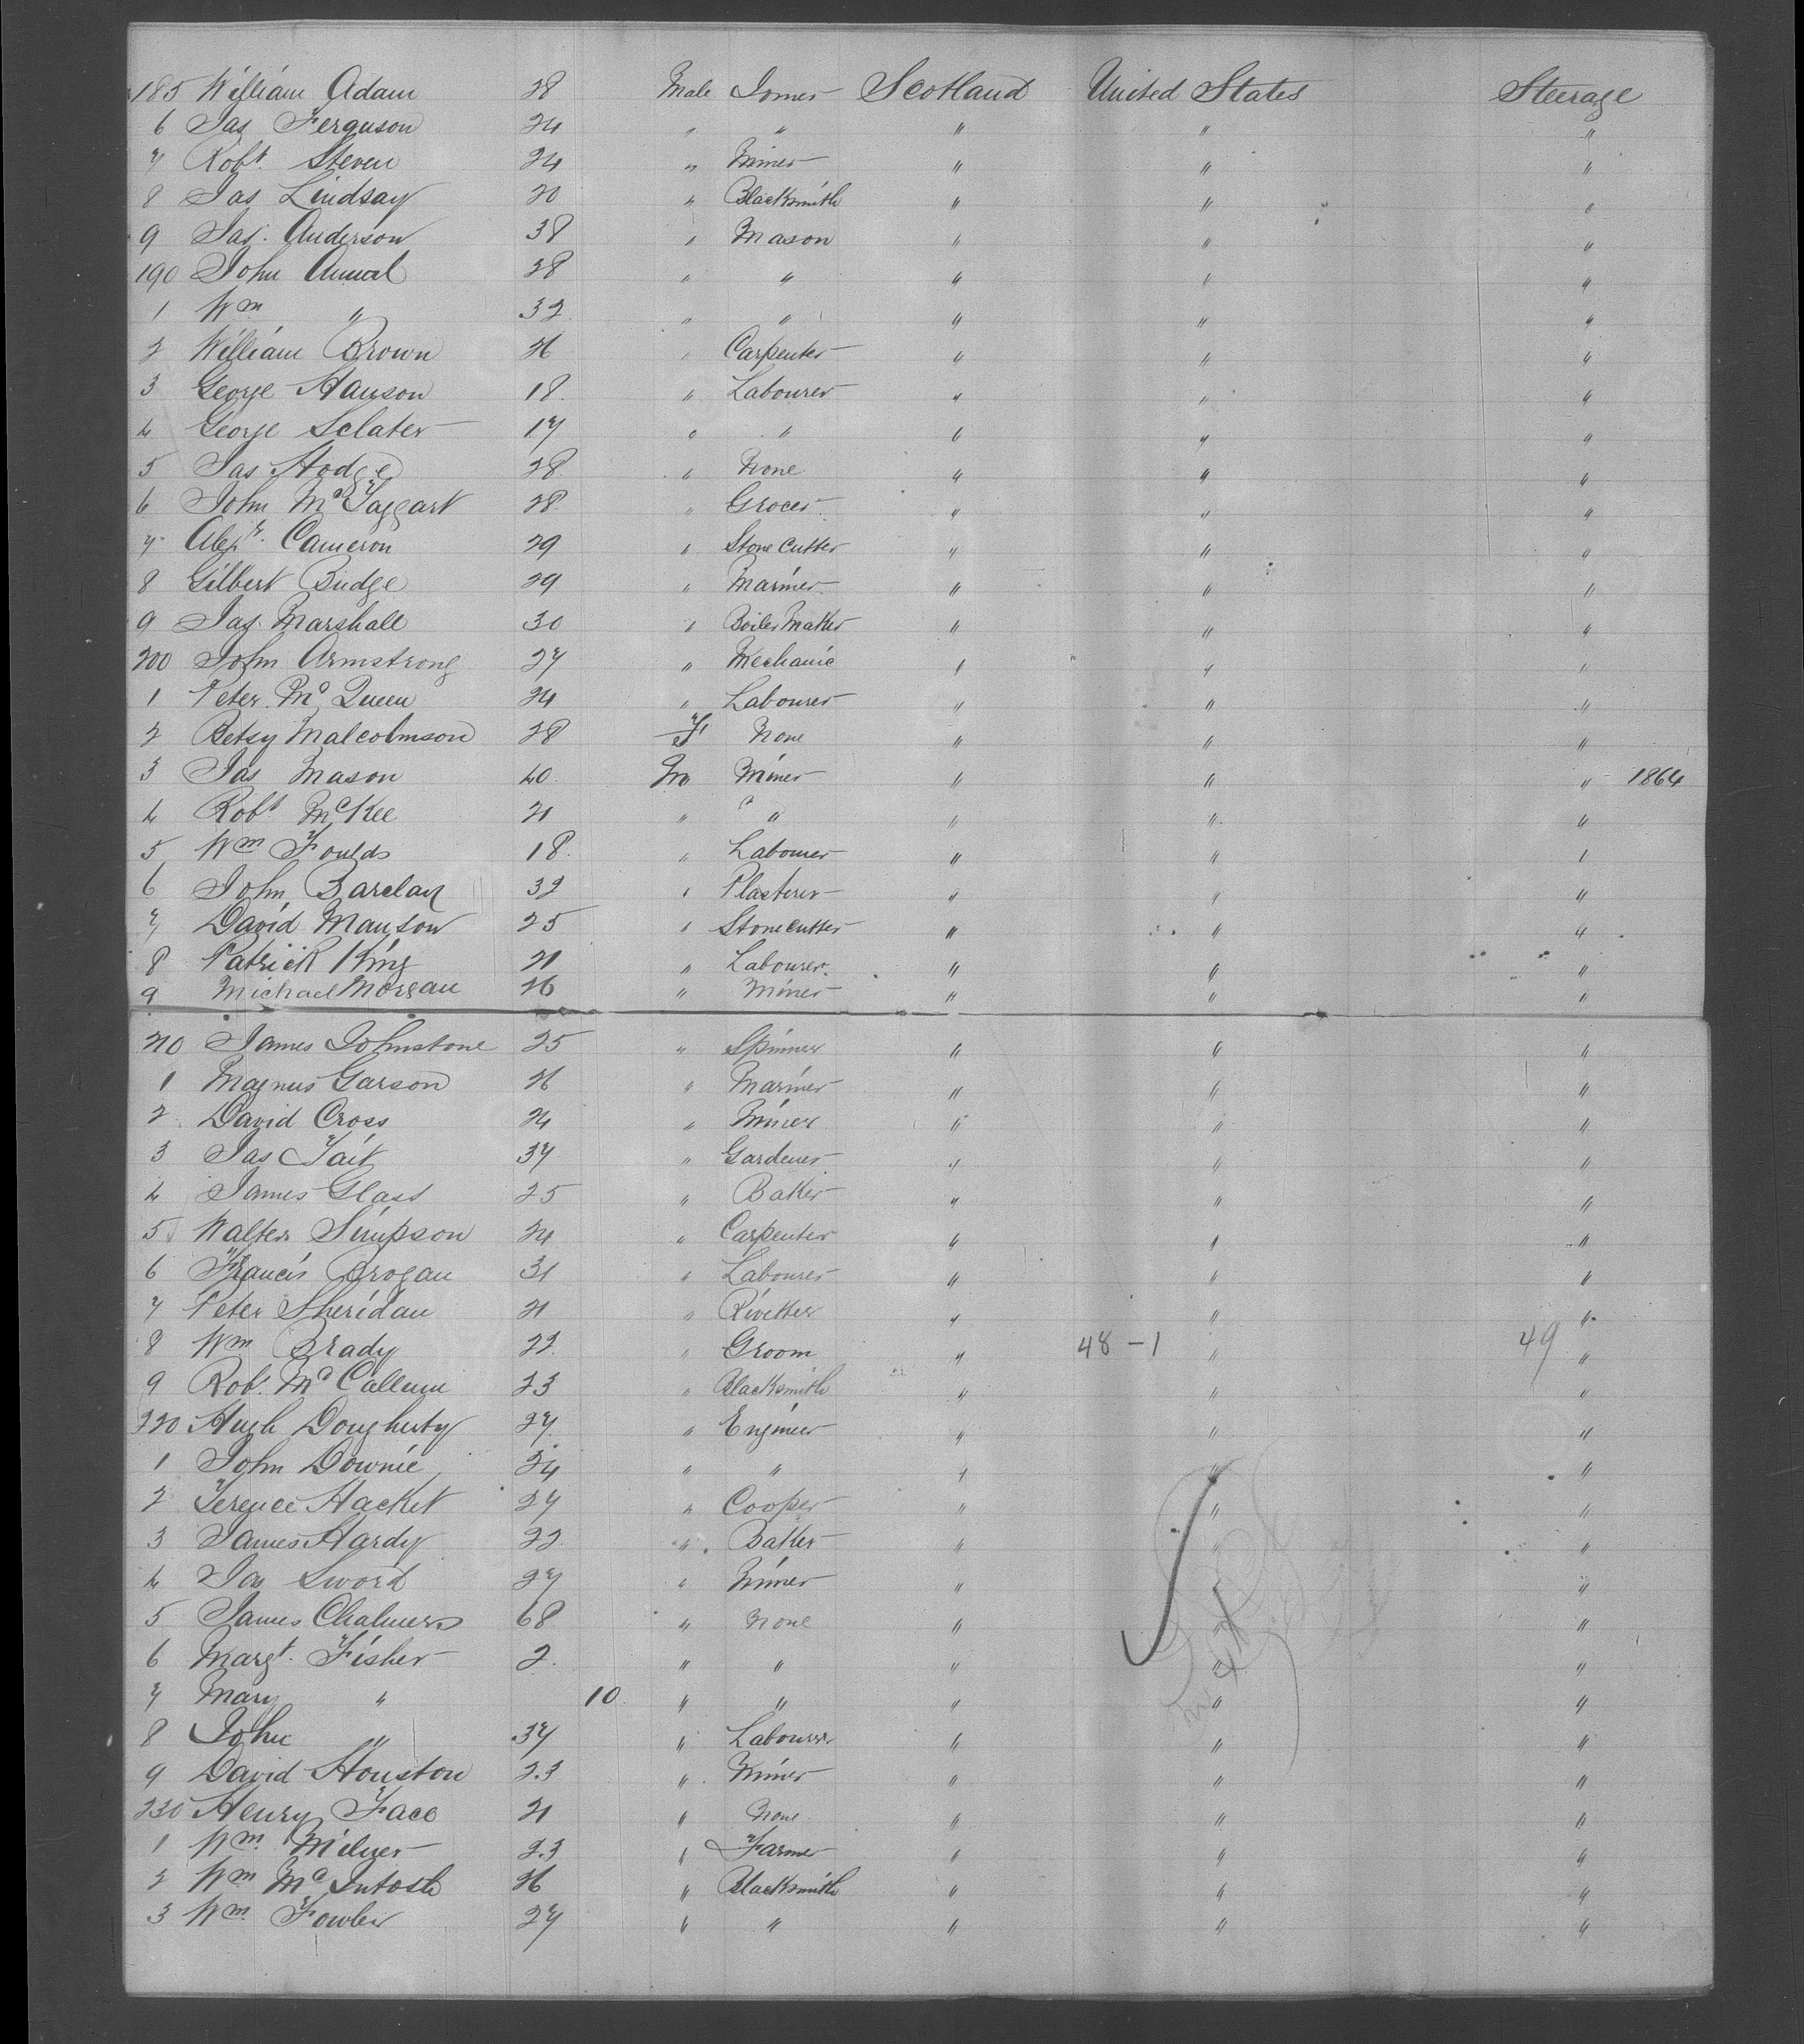 185 William Adam 28 Male Joiner Scotland United States Steerage
6 Jas Ferguson 24 " " " " "
7 Robt. Steven 24 " Miner " " "
8 Jas Lindsay 20 " Blacksmith " " "
9 Jas. Anderson 38 " Mason " " "
190 John Annal 28 " " " " "
1 Wm " 32 " " " " "
2 William Brown 26 " Carpenter " " "
3 George Manson 18 " Labourer " " "
4 George Sclater 17 " " " " "
5 Jas Hodge 28 " None " " "
6 John McTaggart 28 " Grocer " " "
7 Alexr. Cameron 29 " Stone Cutter " " "
8 Gilbert Budge 29 " Mariner " " "
9 Jas. Marshall 30 " Boiler Maker " " "
200 John Armstrong 27 " Mechanic " " "
1 Peter McQueen 24 " Labourer " " "
2 Betsy Malcolmson 28 F None " " "
3 Jas Mason 40 M Miner " " " 1864
4 Robt McKee 21 " " " " "
5 Wm Foulds 18 " Labourer " " "
6 John Barclay 32 " Plasterer " " "
7 David Manson 25 " Stonecutter " " "
8 Patrick King 21 " Labourer " " "
9 Michael Morgan 26 " Miner " " "
210 James Johnstone 25 " Spinner " " "
1 Magnus Garson 26 " Mariner " " "
2 David Cross 24 " Miner " " "
3 Jas Tait 37 " Gardener " " "
4 James Glass 25 " Baker " " "
5 Walter Simpson 24 " Carpenter " " "
6 Francis Brogan 31 " Labourer " " "
7 Peter Sheridan 21 " Rivetter " " "
8 Wm Brady 22 " Groom " 48-1 " 49 "
9 Robt. McCallum 23 " Blacksmith " " "
220 Hugh Dougherty 27 " Engineer " " "
1 John Downie 24 " " " " "
2 Terence Hacket 27 " Cooper " " "
3 James Hardy 22 " Baker " " "
4 Jas Sword 27 " Miner " " "
5 James Chalmers 68 " None " " "
6 Margt. Fisher 2 " " " " "
7 Mary " 10 " " " " "
8 John " 37 " Labourer " " "
9 David Houston 23 " Miner " " "
230 Henry Face 21 " None " " "
1 Wm. Milner 23 " Farmer " " "
2 Wm McIntosh 26 " Blacksmith " " "
3 Wm. Fowler 27 " " " " "